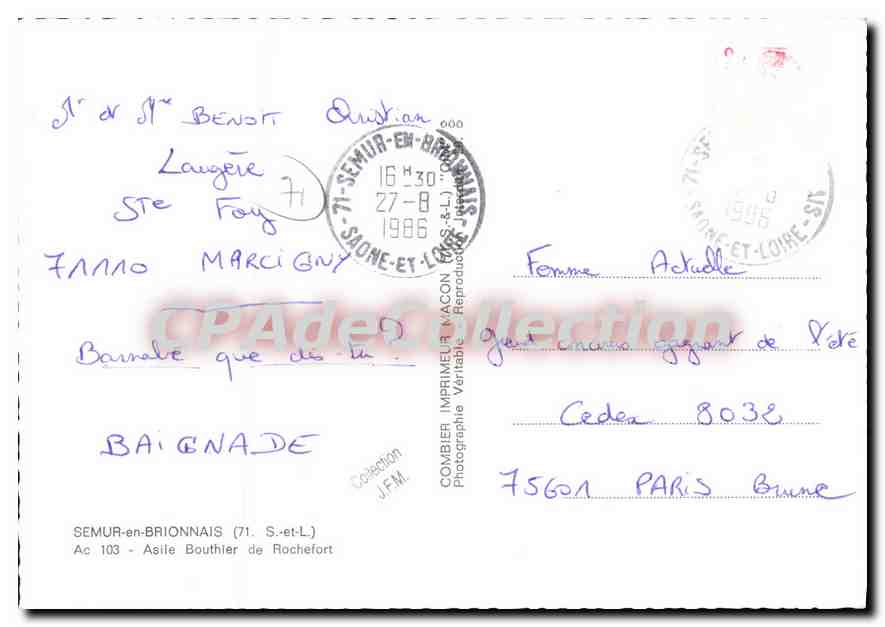 Mr et Mme BENOIT Christian
Laugère
Ste Foy
71
71110 MARCIGNY
Barnabé que dis-tu ?
BAIGNADE
71-SEMUR-EN-BRIONNAIS
16 H 30
27-8
1986
SAONE-ET-LOIRE
COMBIER IMPRIMEUR MACON (S.-&-L.)
Photographie Véritable - Reproduction Interdite
Collection
J.F.M.
SEMUR-en-BRIONNAIS (71. S.-et-L.)
Ac 103 - Asile Bouthier de Rochefort
SAONE-ET-LOIRE
Femme Actuelle
gagnant de l'été
Cedex 8032
75601 PARIS Brune
CPAdeCollection